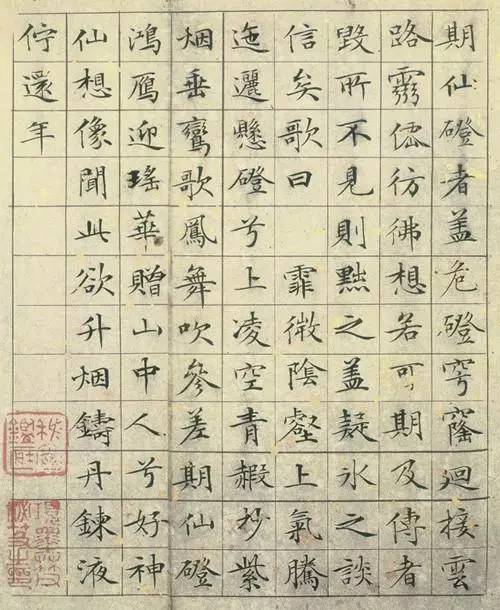 期仙磴者盖危磴穹窿迴接雲
路靈僊彷彿想若可期及傳者
毀所不見則黜之盖疑冰之談
信矣歌曰　霏微陰壑上氣騰
迤邐懸磴兮上凌空青赮杪紫
烟垂鸞歌鳳舞吹參差期仙磴
鴻鴈迎瑤華贈山中人兮好神
仙想像聞此欲升烟鑄丹鍊液
佇還年